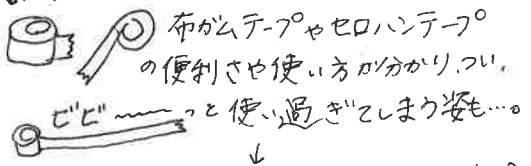 布ガムテープやセロハンテープ
の便利さや使い方が分かり、つい、
ビビ〜〜〜っと使い過ぎてしまう姿も…。
↓